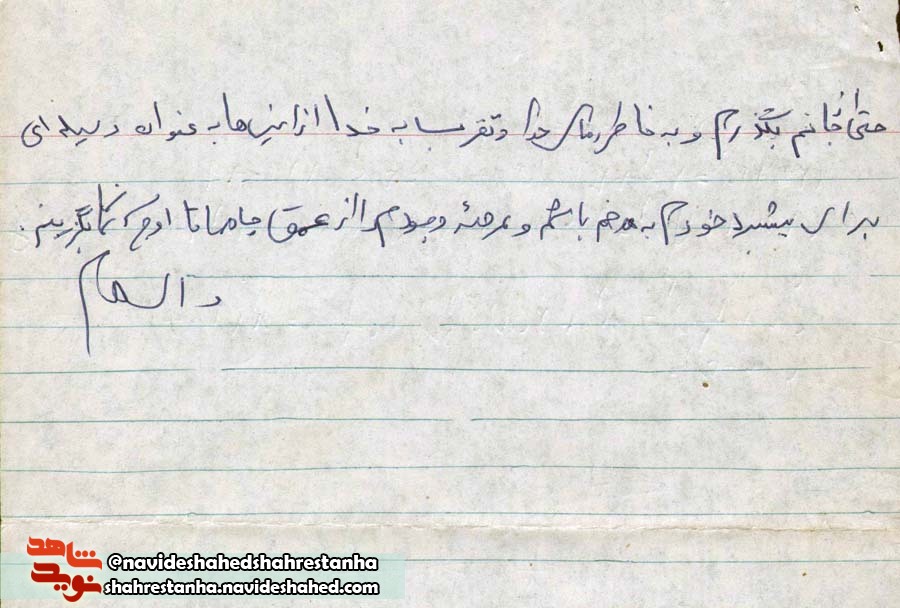 حتی از جانم بگذرم و به خاطر رضای خدا و تقرب به خدا از این‌ها به عنوان وسیله‌ای
برای پیشبرد خودم به هدفم باشم و عرصه وجودم را از عمق چاه‌ها تا اوج بگزینم.
والسلام
شاهد
نوید
@navideshahedshahrestanha
shahrestanha.navideshahed.com